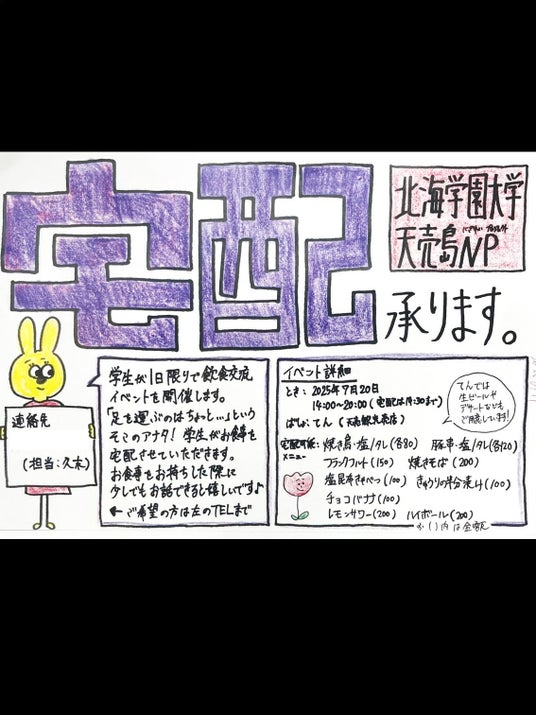 宅配
承ります。
北海学園大学
天売島NP
連絡先
(担当:久末)
学生が1日限りで飲食交流
イベントを開催します。
「足を運ぶのはちょっと…」という
そこのアナタ! 学生がお食事を
宅配させていただきます。
お食事をお持ちした際に
少しでもお話できると嬉しいです♪
← ご希望の方は左のTELまで
イベント詳細
とき:2025年7月20日
14:00〜20:00(宅配は19:30まで)
ばしょ:てん(天売観光売店)
てんでは
生ビールや
デザートなども
ご用意しています!
宅配可能メニュー:焼き鳥・塩/タレ(各80) 豚串・塩/タレ(各120)
フランクフルト(150) 焼きそば(200)
塩昆布きゃべつ(100) きゅうりの半分漬け(100)
チョコバナナ(100)
レモンサワー(200) ハイボール(200)
※( )内は金額